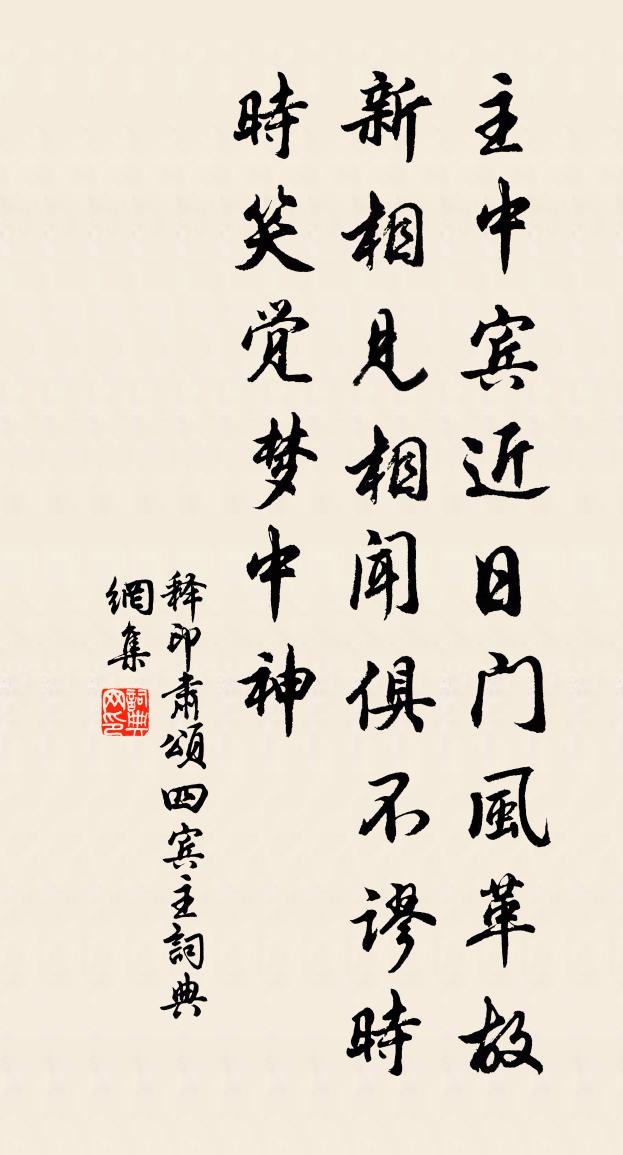 主中宾近日门風革故
新相見相闻俱不謬時
時笑觉梦中神
释印肃頌四宾主詞典
網集
詞典网印